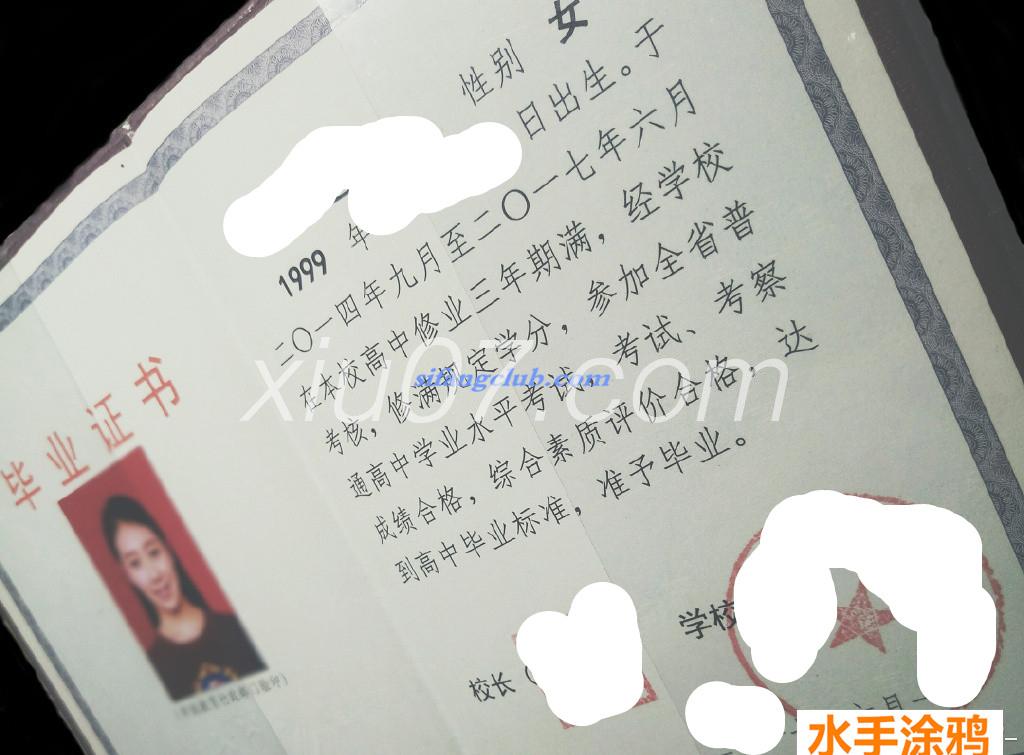 毕业证书
性别 女
1999 年
日出生。于
二〇一四年九月至二〇一七年六月
在本校高中修业三年期满，经学校
考核，修满规定学分，参加全省普
通高中学业水平考试、考试、考察
成绩合格，综合素质评价合格，达
到高中毕业标准，准予毕业。
xiu07.com
sifangclub.com
校长
学校
六月一
水手涂鸦